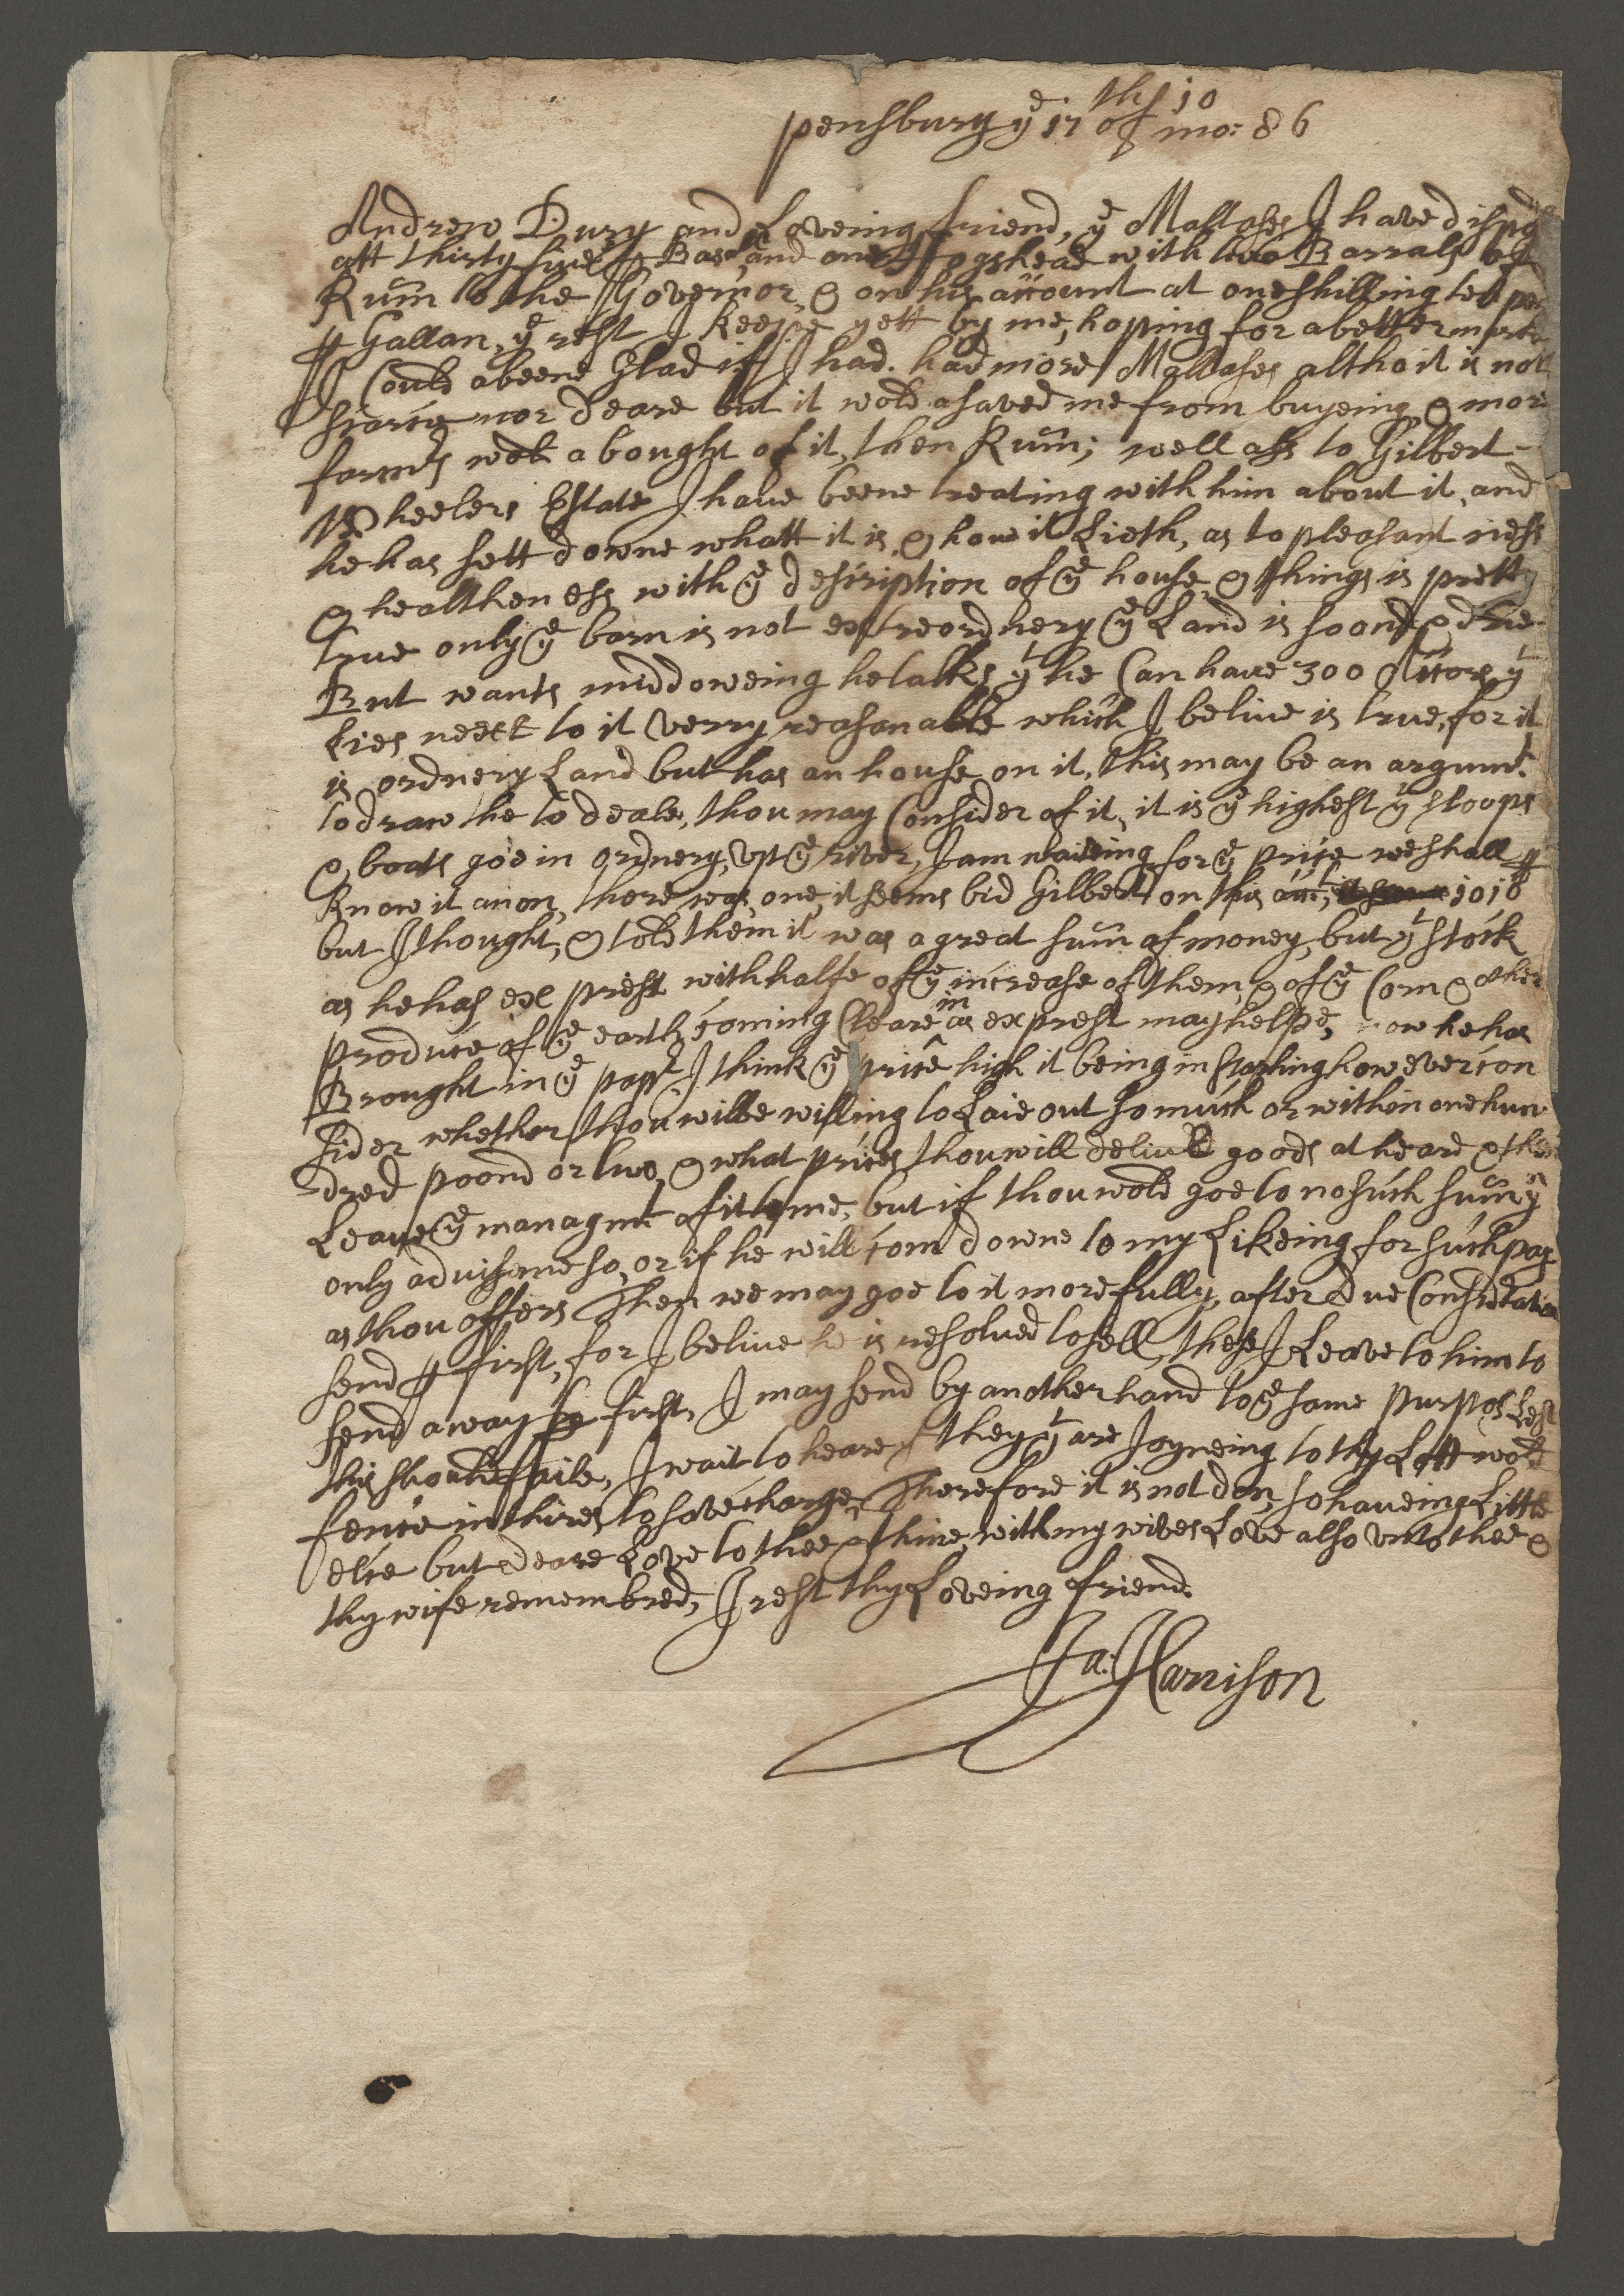 pensburg yᵉ 17ᵗʰ of 10 mo: 86
Andrew Dury and Loveing friend, yᵉ Mallases I have dispo
att thirty five ⅌ Bar and one Hogshead with two Barrals of
Rum to the Governor, & on his account at one shilling ten pen
⅌ Gallan, yᵉ rest I keepe yett by me, hoping for a better marke
I Could abeene Glad iff I had. had more Mallases altho it is not
scarce nor deare but it wold asaved me from buyeing, & more
farmʳˢ wold a bought of it, then Rum; well ass to Gilbert -
Wheelers Estate I have beene treating with him about it, and
he has sett downe whatt it is & how it Lieth, as to pleasant ness
& healtheness with yᵉ description of yᵉ house & things is pretty
true only yᵉ barn is not extreordnery yᵉ Land is soond & drie
But wants middoweing he talks yᵗ he Can have 300 Accors yᵗ
Lies neext to it verry reasonable which I belive is true, for it
is ordnery Land but has an house on it, this may be an argumᵗ
to draw the to deale, thou may Consider of it, it is yᵉ highest yᵗ sloops
& boats goe in ordnery, up yᵉ river, I am waiteing for yᵉ price we shall
Know it anon, there was one, it seems bid Gilbert on this acct, 1010ˡᵇ
but I thought, & told them it was a great sum of money, but yᵗ stock
as he has exprest with halfe of yᵉ increase of them & of yᵉ Corn & other
produce of yᵉ earth coming Cleare in as exprest may helpe, now he has
Brought in yᵉ papʳ I think yᵉ price high it being in starling however con
sider whether thou wilbe willing to Laie out so much or within one hun
dred poond or two & what prices thou will deliver goods at heare & then
Leave yᵉ managmᵗ of it to me, but if thou wold goe to no such sum yⁿ
only advise me so, or if he will com downe to my Likeing for such pay
as thou offers Then we may goe to it more fully, after due Consideration
send ⅌ first, for I belive he is resolved to sell, these I Leave to him to
send away ⅌ first, I may send by another hand to yᵉ same purpos Lest
this should faile, I wait to heare if they yᵗ are Joyneing to thy Lott wold
fence in thires to save charge, Therefore it is not don, so haveing Little
elce but deare Love to thee & thine, with my wives Love also unto thee &
thy wife remembred, I rest thy Loveing friend.
Ja: Harrison